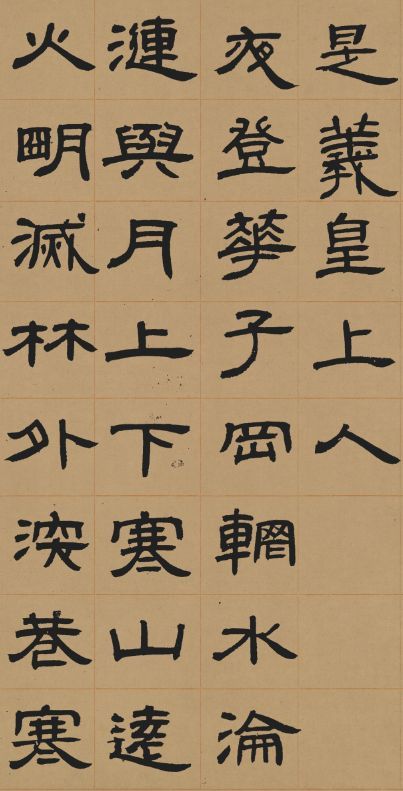 是羲皇上人
夜登華子岡輞水淪
漣與月上下寒山遠
火明滅林外深巷寒